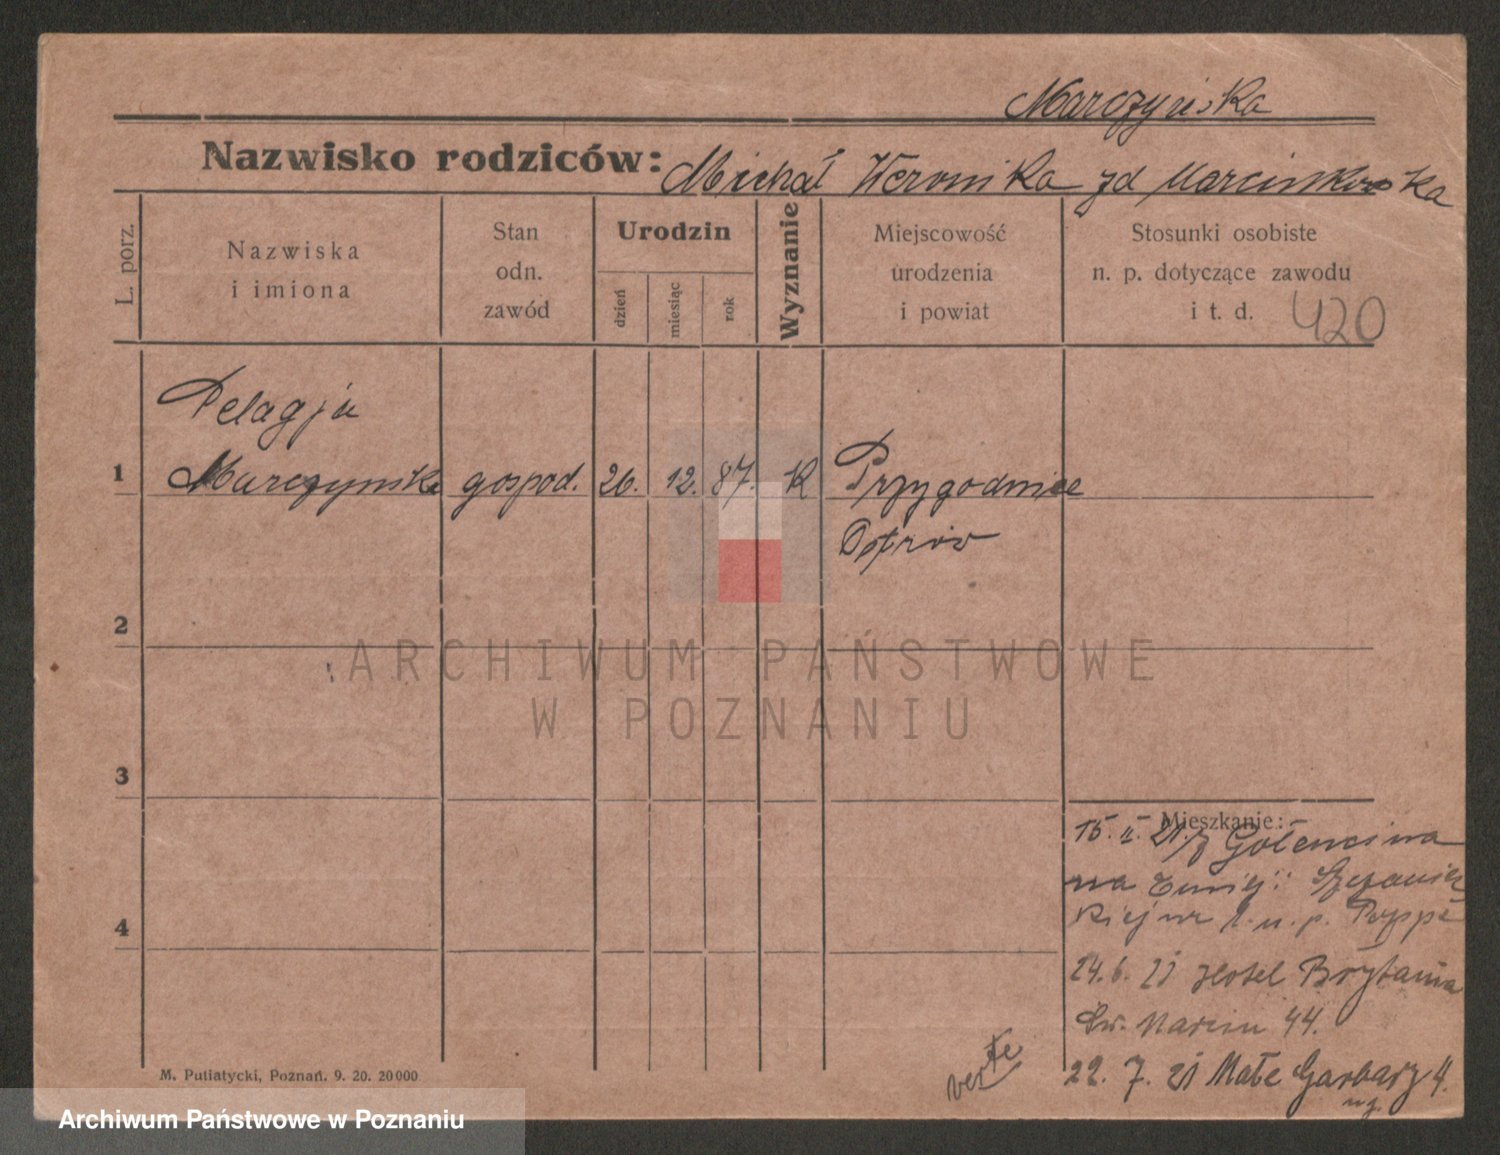 Marczyńska
Nazwisko rodziców: Michał Weronika zd Marcinkowska
L. porz.
Nazwiska
i imiona
Stan
odn.
zawód
Urodzin
dzień
miesiąc
rok
Wyznanie
Miejscowość
urodzenia
i powiat
Stosunki osobiste
n. p. dotyczące zawodu
i t. d. 420
Pelagja
1 Marczynska gospod. 26. 12. 87. K Przygodnice
Ostrów
2
3
4
ARCHIWUM PAŃSTWOWE
W POZNANIU
Mieszkanie:
15. II. 21. z Golencina
na
kiej nr 1. u. p. Poppe
24. 6. 21 Hotel Brytania
Św. Marcin 44.
22. 7. 21 Małe Garbary 4.
verte
M. Putiatycki, Poznań. 9. 20. 20000
Archiwum Państwowe w Poznaniu